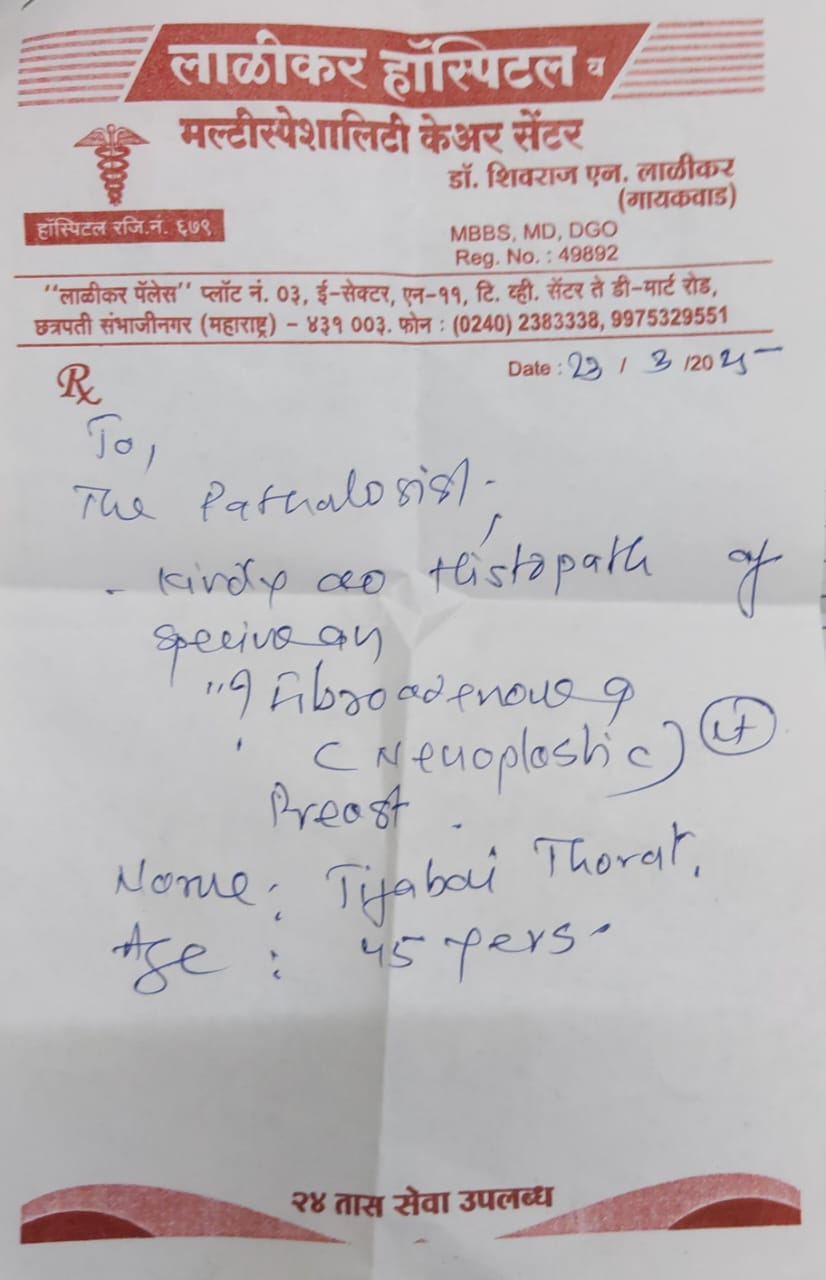 लाळीकर हॉस्पिटल व
मल्टीस्पेशालिटी केअर सेंटर
डॉ. शिवराज एन. लाळीकर
(गायकवाड)
हॉस्पिटल रजि.नं. ६७९
MBBS, MD, DGO
Reg. No. : 49892
"लाळीकर पॅलेस" प्लॉट नं. ०३, ई-सेक्टर, एन-११, टि. व्ही. सेंटर ते डी-मार्ट रोड,
छत्रपती संभाजीनगर (महाराष्ट्र) - ४३१ ००३. फोन : (0240) 2383338, 9975329551
Rx
Date : 23 / 3 /2025
To,
The Pathalogist,
- Kindly do Histopath of
"? Fibroadenoue ?
Breast.
Name : Tijabai Thorat.
Age : 45 yers.
२४ तास सेवा उपलब्ध